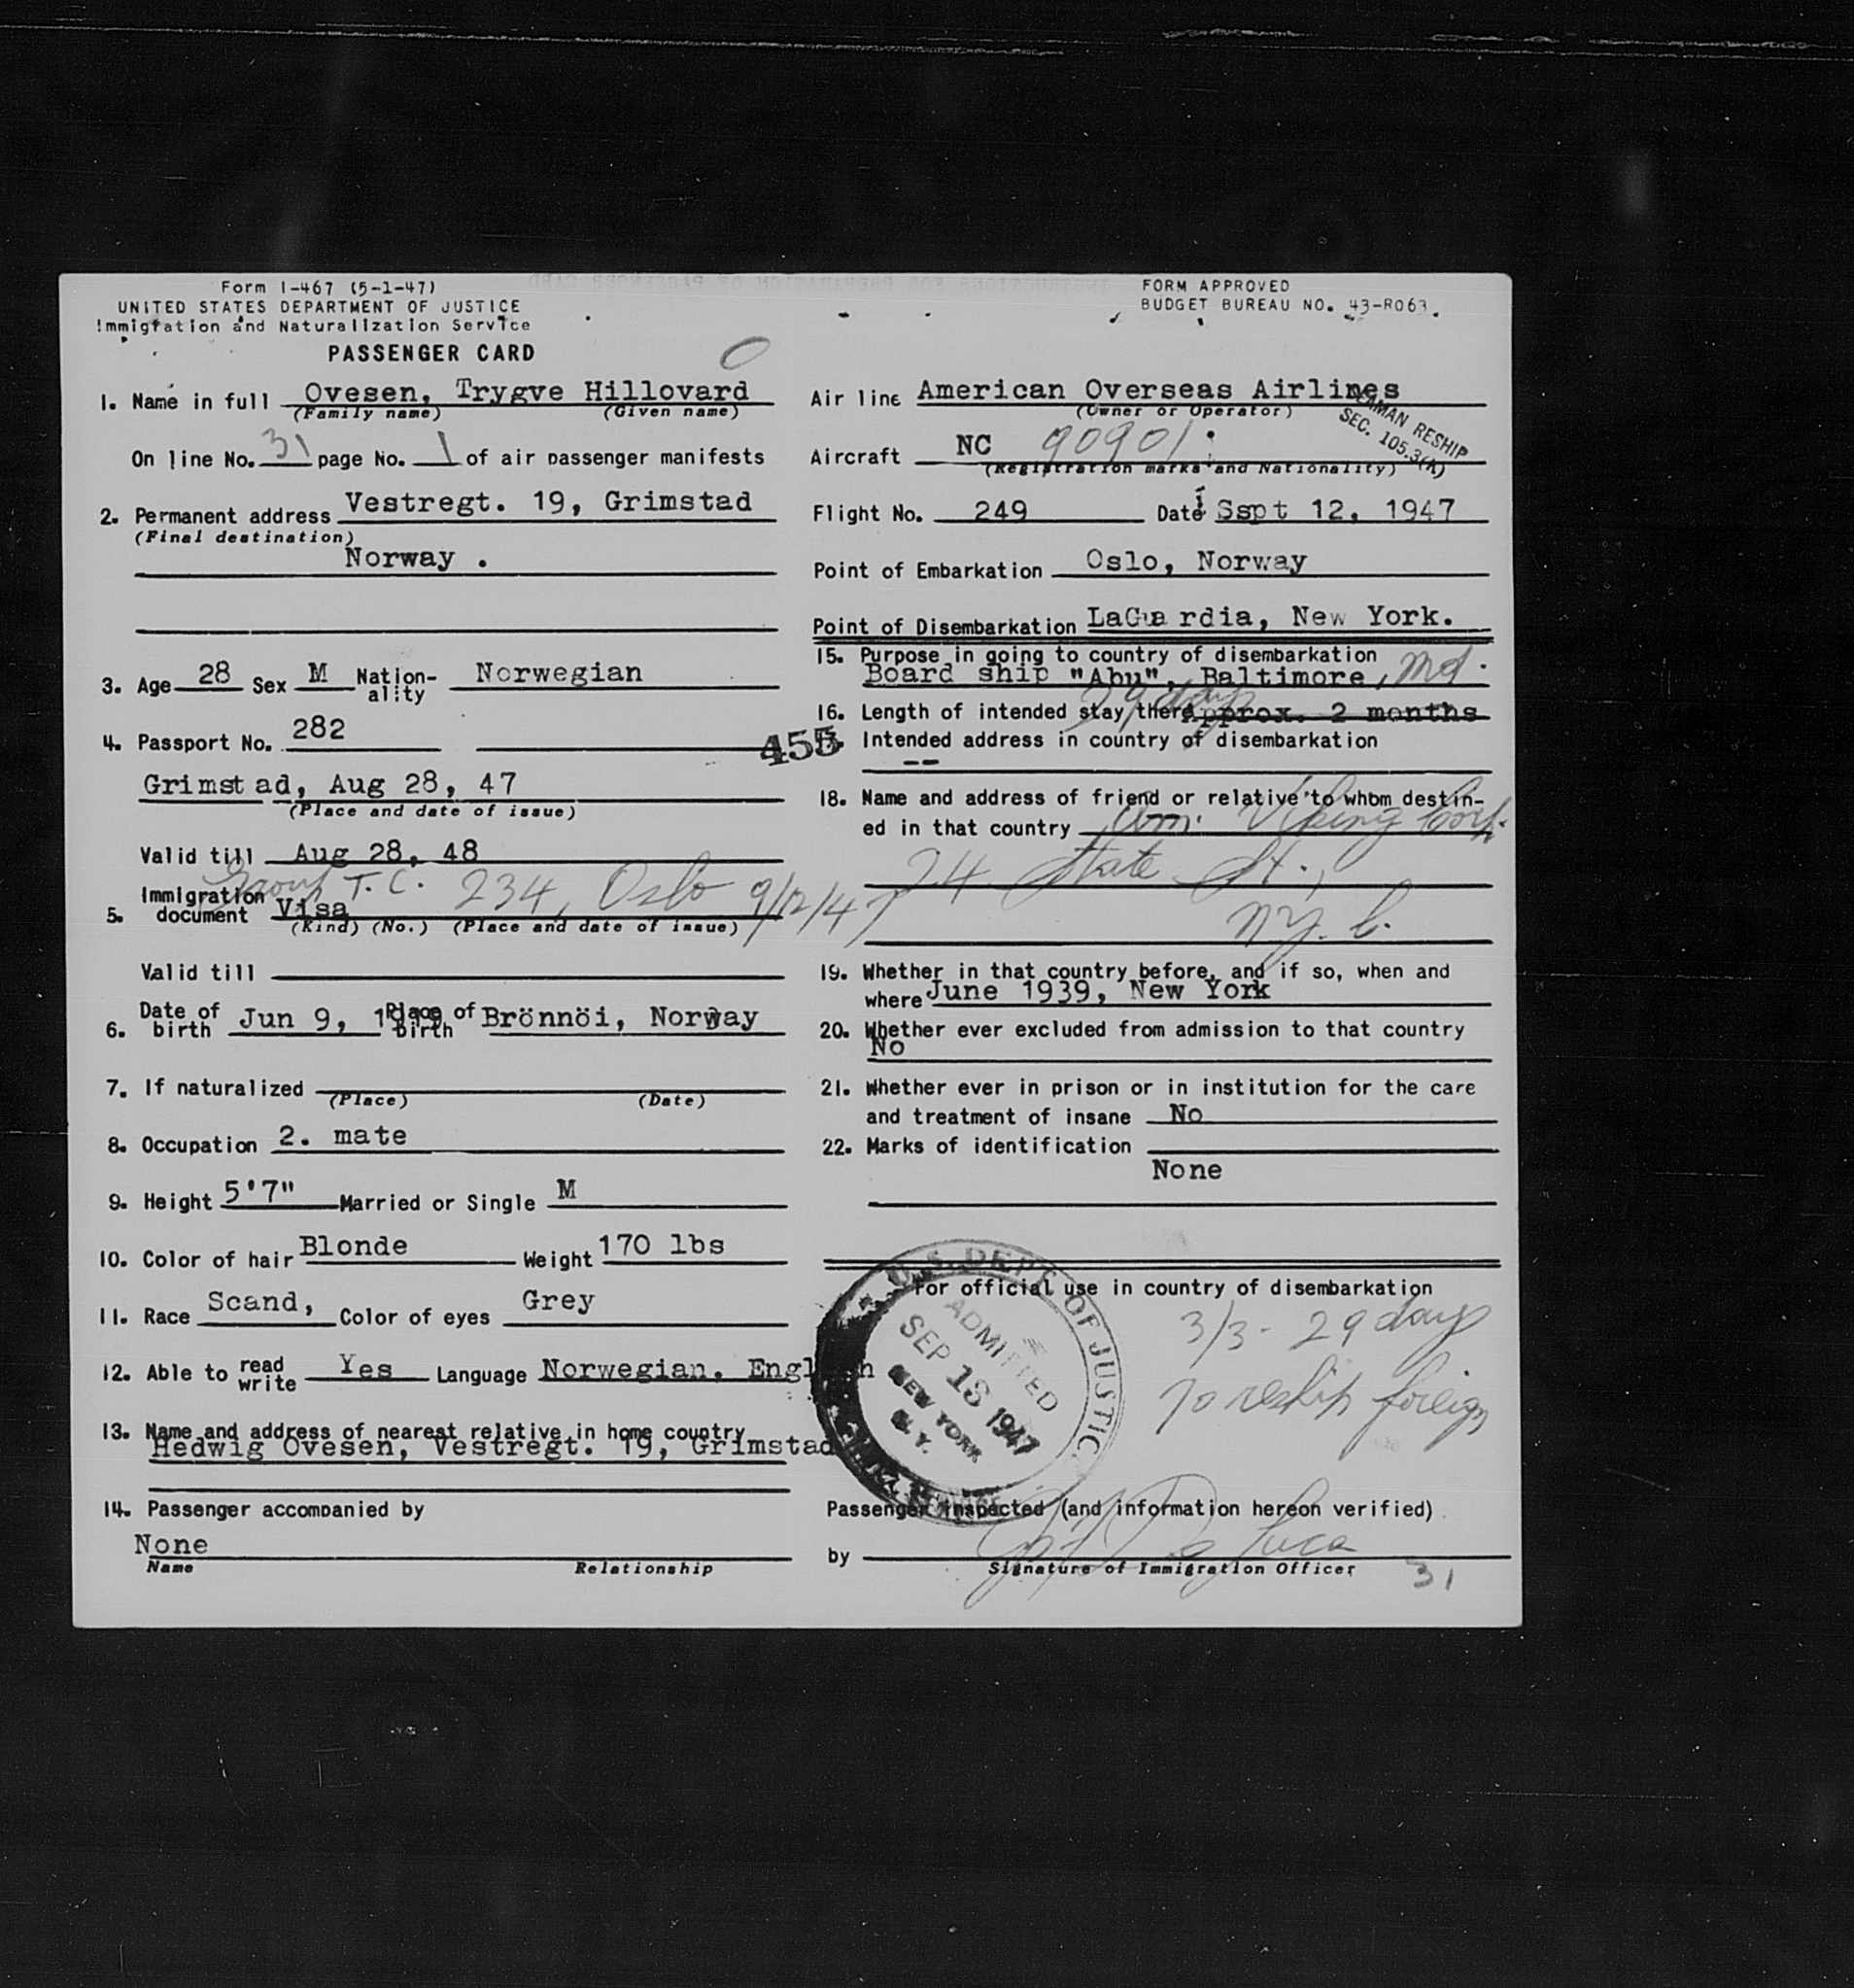 Form I-467 (5-1-47)
UNITED STATES DEPARTMENT OF JUSTICE
Immigration and Naturalization Service
PASSENGER CARD
FORM APPROVED
BUDGET BUREAU NO. 43-R063.
1. Name in full Ovesen, Trygve Hillovard
(Family name) (Given name)
On line No. 31 page No. 1 of air passenger manifests
2. Permanent address Vestregt. 19, Grimstad
(Final destination)
Norway .
3. Age 28 Sex M Nation-ality Norwegian
4. Passport No. 282
Grimstad, Aug 28, 47
(Place and date of issue)
Valid till Aug 28, 48
Group T.C. 234, Oslo 9/12/47
5. Immigration document Visa
(Kind) (No.) (Place and date of issue)
Valid till
6. Date of birth Jun 9, Place of birth Brönnöi, Norway
7. If naturalized
(Place) (Date)
8. Occupation 2. mate
9. Height 5'7" Married or Single M
10. Color of hair Blonde Weight 170 lbs
11. Race Scand, Color of eyes Grey
12. Able to read write Yes Language Norwegian, English
13. Name and address of nearest relative in home country
Hedwig Ovesen, Vestregt. 19, Grimstad
14. Passenger accompanied by
None
Name Relationship
Air line American Overseas Airlines
(Owner or Operator)
RESHIP
SEC. 105.3(A)
Aircraft NC 90901
(Registration marks and Nationality)
Flight No. 249 Date Sspt 12, 1947
Point of Embarkation Oslo, Norway
Point of Disembarkation LaGuardia, New York.
15. Purpose in going to country of disembarkation
Board ship "Abu", Baltimore, Md.
29 days
16. Length of intended stay there Approx. 2 months
455 Intended address in country of disembarkation
--
18. Name and address of friend or relative to whom destin-
ed in that country Am. Viking Corp.
24 State St.,
N.Y.C.
19. Whether in that country before, and if so, when and
where June 1939, New York
20. Whether ever excluded from admission to that country
No
21. Whether ever in prison or in institution for the care
and treatment of insane No
22. Marks of identification
None
For official use in country of disembarkation
U.S. DEPT. OF JUSTICE
ADMITTED
SEP 13 1947
NEW YORK
N.Y.
3/3 - 29 days
To reship foreign
Passenger inspected (and information hereon verified)
by
Signature of Immigration Officer
31